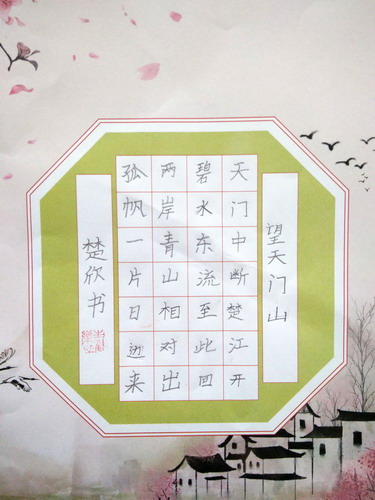 望天门山
天门中断楚江开
碧水东流至此回
两岸青山相对出
孤帆一片日边来
楚欣书